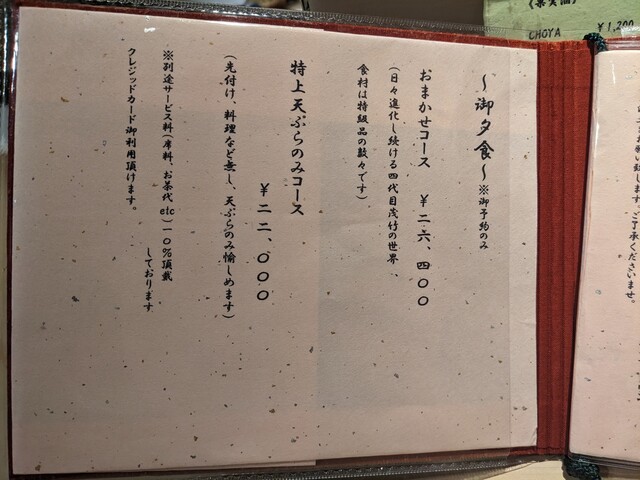 ～御夕食～※御予約のみ
おまかせコース　￥二六、四〇〇
（日々進化し続ける四代目茂竹の世界、
食材は特級品の数々です）
特上天ぷらのみコース
￥二二、〇〇〇
（先付け、料理など無し、天ぷらのみ愉しめます）
※別途サービス料（席料、お茶代etc）一〇％頂戴
しております
クレジッドカード御利用頂けます。
CHOYA ￥1,200
ご了承くださいませ。